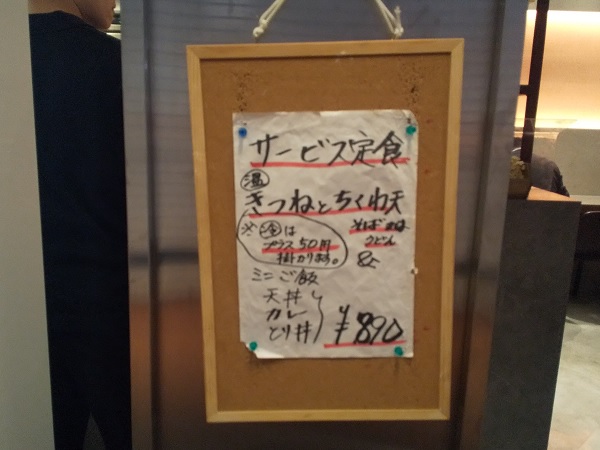 サービス定食
温
きつねとちくわ天
※冷は
プラス50円
掛かります。
そば又は
うどん
&
ミニご飯
天丼
カレー
とり丼
¥890